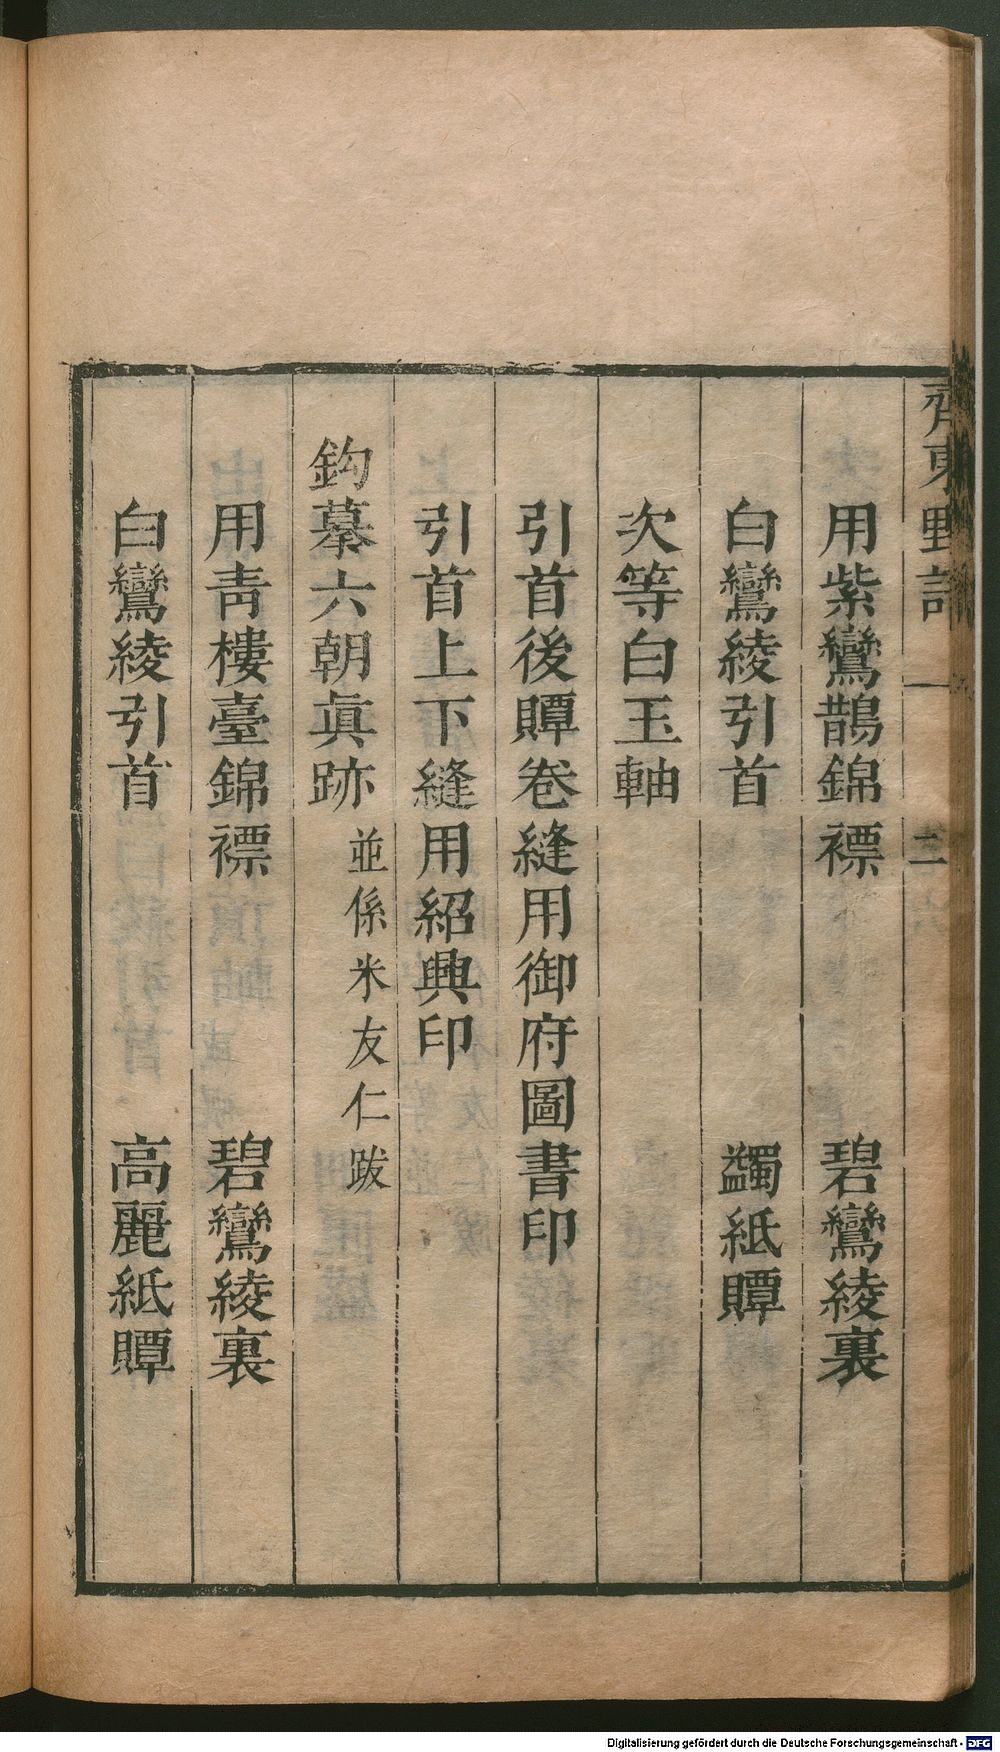 齊東野語 一 二
用紫鸞鵲錦褾 碧鸞綾裏
白鸞綾引首 蠲紙贉
次等白玉軸
引首後贉卷縫用御府圖書印
引首上下縫用紹興印
鈎摹六朝眞跡 並係米友仁跋
用靑樓臺錦褾 碧鸞綾裏
白鸞綾引首 高麗紙贉
Digitalisierung gefördert durch die Deutsche Forschungsgemeinschaft - DFG